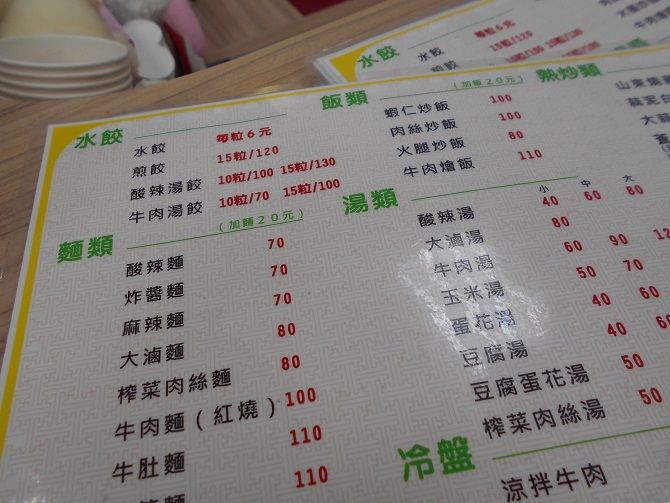 水餃
水餃 每粒6元
15粒/120
水餃
水餃 每粒6元
煎餃 15粒/120
酸辣湯餃 10粒/100 15粒/130
牛肉湯餃 10粒/70 15粒/100
麵類 (加麵20元)
酸辣麵 70
炸醬麵 70
麻辣麵 70
大滷麵 80
榨菜肉絲麵 80
牛肉麵(紅燒) 100
牛肚麵 110
麵 110
飯類 (加飯20元)
蝦仁炒飯 100
肉絲炒飯 100
火腿炒飯 80
牛肉燴飯 110
湯類 小 中 大
酸辣湯 40 60 80
大滷湯 80
牛肉湯 60 90
玉米湯 50 70
蛋花湯 40 60
豆腐湯 40
豆腐蛋花湯 50
榨菜肉絲湯 50
冷盤
涼拌牛肉
熱炒類
山東
蒜泥白